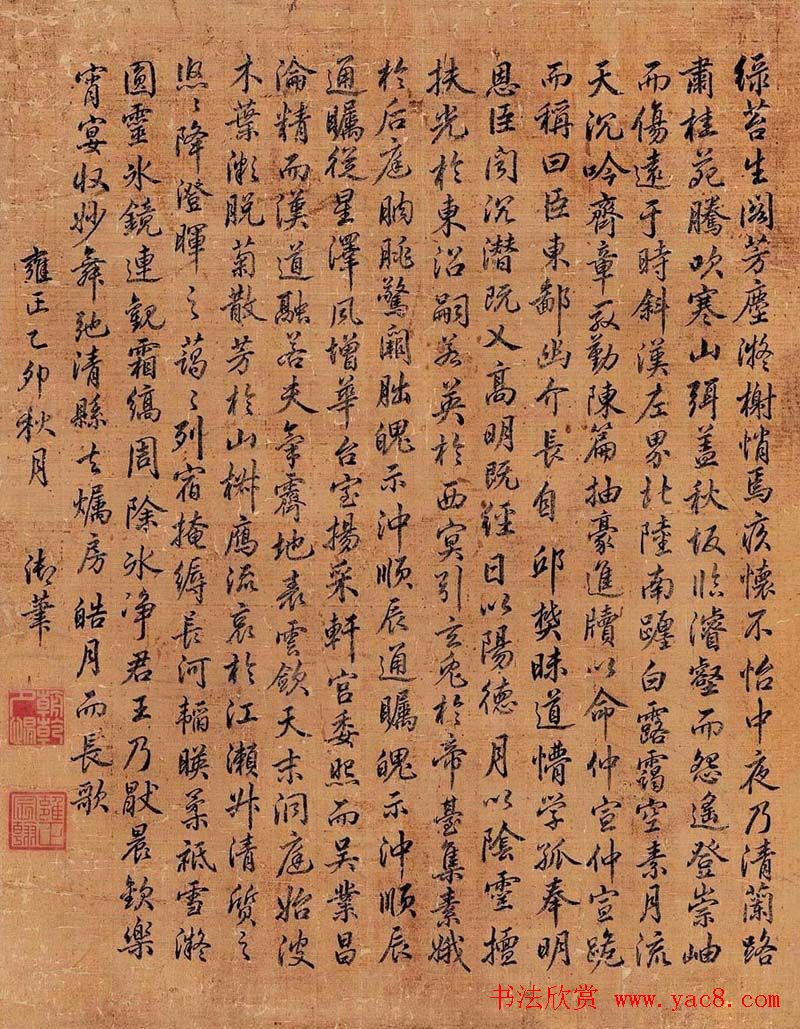 绿苔生閣芳塵凝榭悄焉疚懷不怡中夜乃清蘭路
肅桂苑騰吹寒山弭盖秋坂臨濬壑而怨遙登崇岫
而傷遠于時斜漢左界北陸南躔白露靄空素月流
天沉吟齊章殷勤陳篇抽豪進牘以命仲宣仲宣跪
而稱曰臣東鄙幽介長自邱樊昧道懵学孤奉明
恩臣聞沉潜既义高明既經日以陽德月以陰靈擅
扶光於東沼嗣若英於西冥引玄兔於帝臺集素娥
於后庭朒朓驚闕朏魄示冲順辰通矚魄示冲順辰
通矚從星澤風增華台室揚采軒宫委照而吴業昌
淪精而漢道融若夫氣霽地表雲歛天末洞庭始波
木葉漸脱菊散芳於山椒鴈流哀於江瀬升清質之
悠〻降澄暉之藹〻列宿掩縟長河韜暎柔祇雪凝
圓靈氷鏡連觀霜縞周除氷净君王乃猒晨歡樂
宵宴收妙舞弛清縣去燭房皓月而長歌
雍正乙卯秋月 御筆
书法欣赏 www.yac8.com